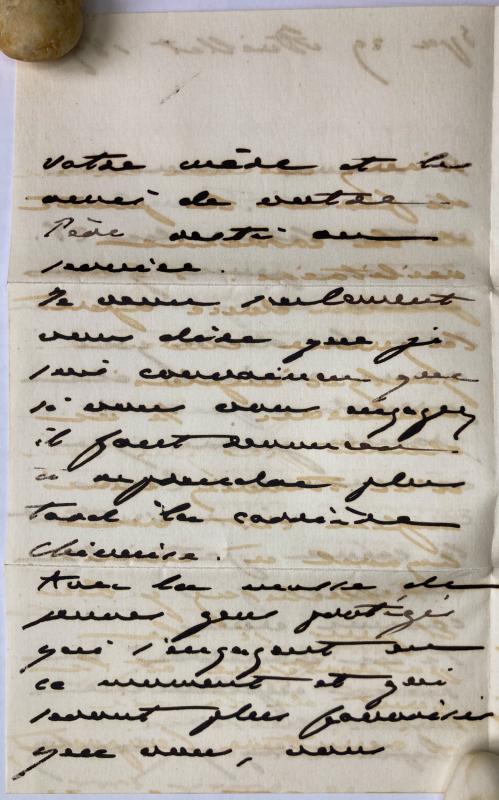 votre mère et les
amis de votre
Père resté au
service.
Je veux seulement
vous dire que je
suis convaincu que
si vous vous engagez
il faut renoncer
à reprendre plus
tard la carrière
chinoise.
Avec la masse de
jeunes gens protégés
qui s'engagent en
ce moment et qui
seront plus favorisés
que vous, vous